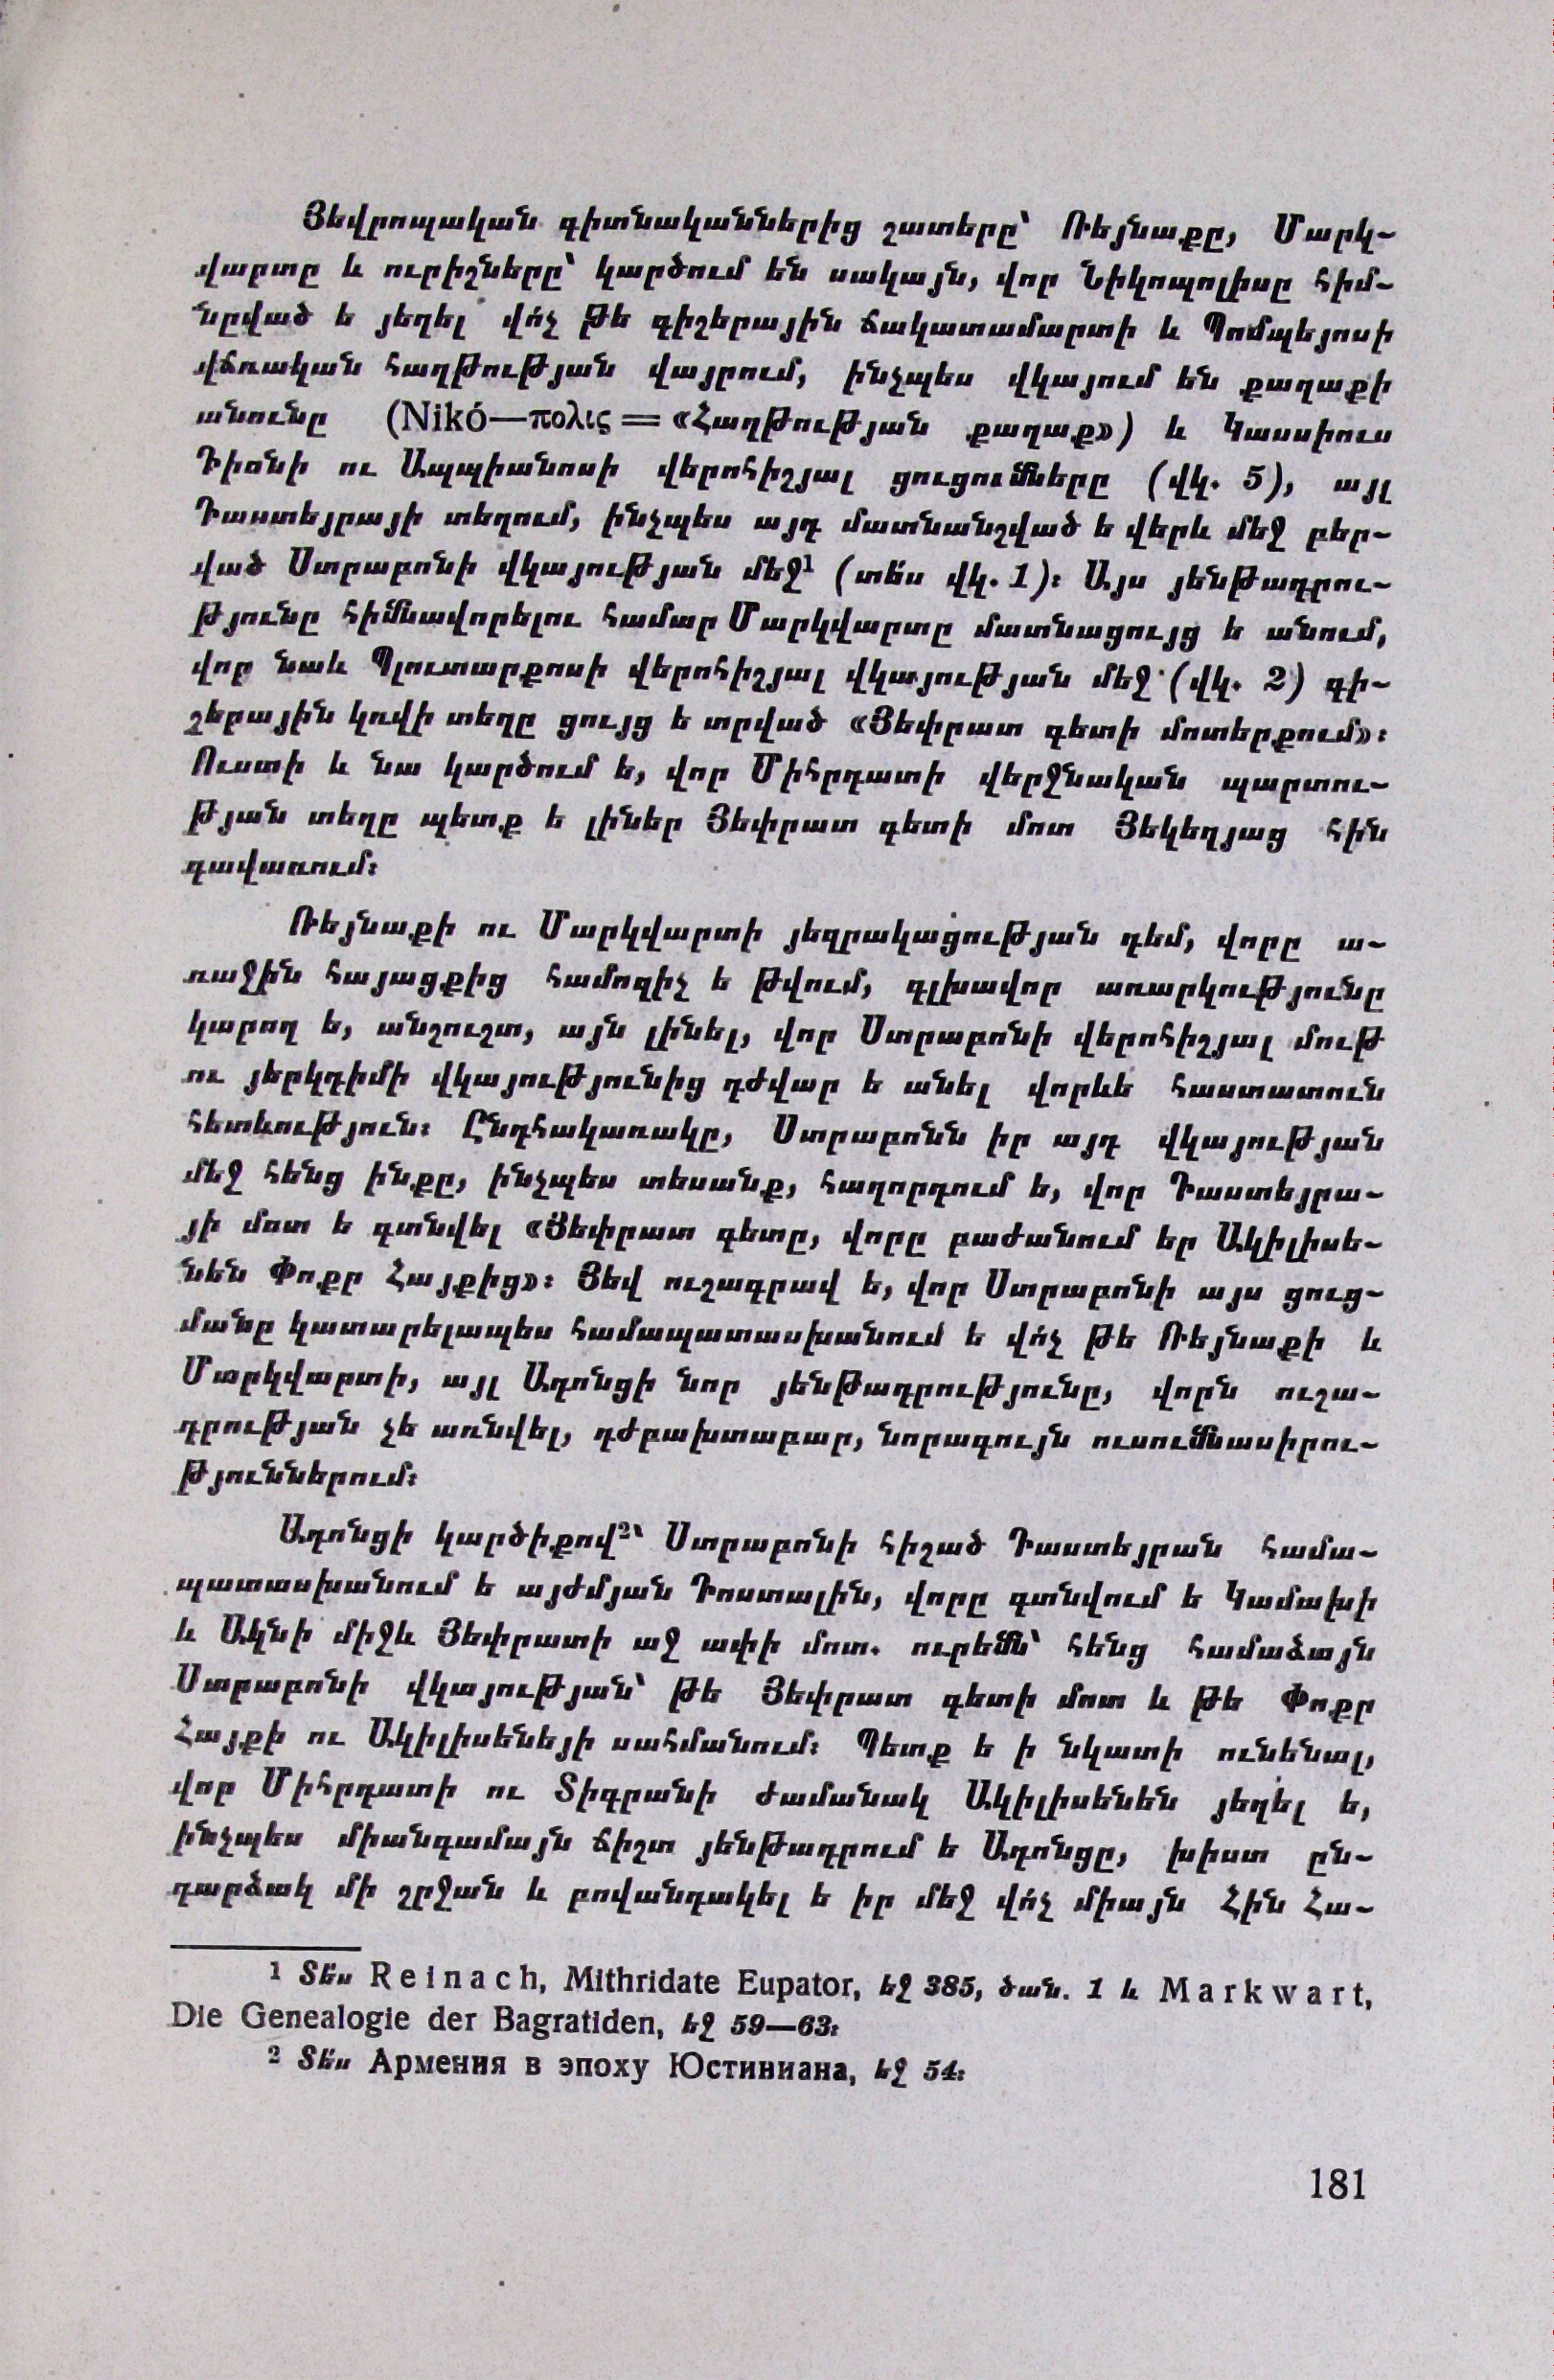 Յեվրոպական գիտնականներից շատերը՝ Ռեյնաքը, Մարկ-
վարտը և ուրիշները՝ կարծում են սակայն, վոր Նիկոպոլիսը հիմ-
նըված ե յեղել վո՛չ թե գիշերային ճակատամարտի և Պոմպեյոսի
վճռական հաղթության վայրում, ինչպես վկայում են քաղաքի
անունը (Nikó—πολις = «Հաղթության քաղաք») և Կասսիուս
Դիոնի ու Ապպիանոսի վերոհիշյալ ցուցումները (վկ. 5), այլ
Դաստեյրայի տեղում, ինչպես այդ մատնանշված ե վերև մեջ բեր-
ված Ստրաբոնի վկայության մեջ¹ (տե՛ս վկ. 1)։ Այս յենթադրու-
թյունը հիմնավորելու համար Մարկվարտը մատնացույց ե անում,
վոր նաև Պլուտարքոսի վերոհիշյալ վկայության մեջ (վկ. 2) գի-
շերային կռվի տեղը ցույց ե տրված «Յեփրատ գետի մոտերքում»։
Ուստի և նա կարծում ե, վոր Միհրդատի վերջնական պարտու-
թյան տեղը պետք ե լիներ Յեփրատ գետի մոտ Յեկեղյաց հին
գավառում։
Ռեյնաքի ու Մարկվարտի յեզրակացության դեմ, վորը ա-
ռաջին հայացքից համոզիչ ե թվում, գլխավոր առարկությունը
կարող ե, անշուշտ, այն լինել, վոր Ստրաբոնի վերոհիշյալ մութ
ու յերկդիմի վկայությունից դժվար ե անել վորևե հաստատուն
հետևություն։ Ընդհակառակը, Ստրաբոնն իր այդ վկայության
մեջ հենց ինքը, ինչպես տեսանք, հաղորդում ե, վոր Դաստեյրա-
յի մոտ ե գտնվել «Յեփրատ գետը, վորը բաժանում եր Ակիլիսե-
նեն Փոքր Հայքից»։ Յեվ ուշագրավ ե, վոր Ստրաբոնի այս ցուց-
մանը կատարելապես համապատասխանում ե վո՛չ թե Ռեյնաքի և
Մարկվարտի, այլ Ադոնցի նոր յենթադրությունը, վորն ուշա-
դրության չե առնվել, դժբախտաբար, նորագույն ուսումնասիրու-
թյուններում։
Ադոնցի կարծիքով²՝ Ստրաբոնի հիշած Դաստեյրան համա-
պատասխանում ե այժմյան Դոստալին, վորը գտնվում ե Կամախի
և Ակնի միջև Յեփրատի աջ ափի մոտ. ուրեմն՝ հենց համաձայն
Ստրաբոնի վկայության՝ թե Յեփրատ գետի մոտ և թե Փոքր
Հայքի ու Ակիլիսենեյի սահմանում։ Պետք ե ի նկատի ունենալ,
վոր Միհրդատի ու Տիգրանի ժամանակ Ակիլիսենեն յեղել ե,
ինչպես միանգամայն ճիշտ յենթադրում ե Ադոնցը, խիստ ըն-
դարձակ մի շրջան և բովանդակել ե իր մեջ վո՛չ միայն Հին Հա-
1 Տե՛ս Reinach, Mithridate Eupator, եջ 385, ծան. 1 և Markwart,
Die Genealogie der Bagratiden, եջ 59—63։
2 Տե՛ս Армения в эпоху Юстиниана, եջ 54։
181